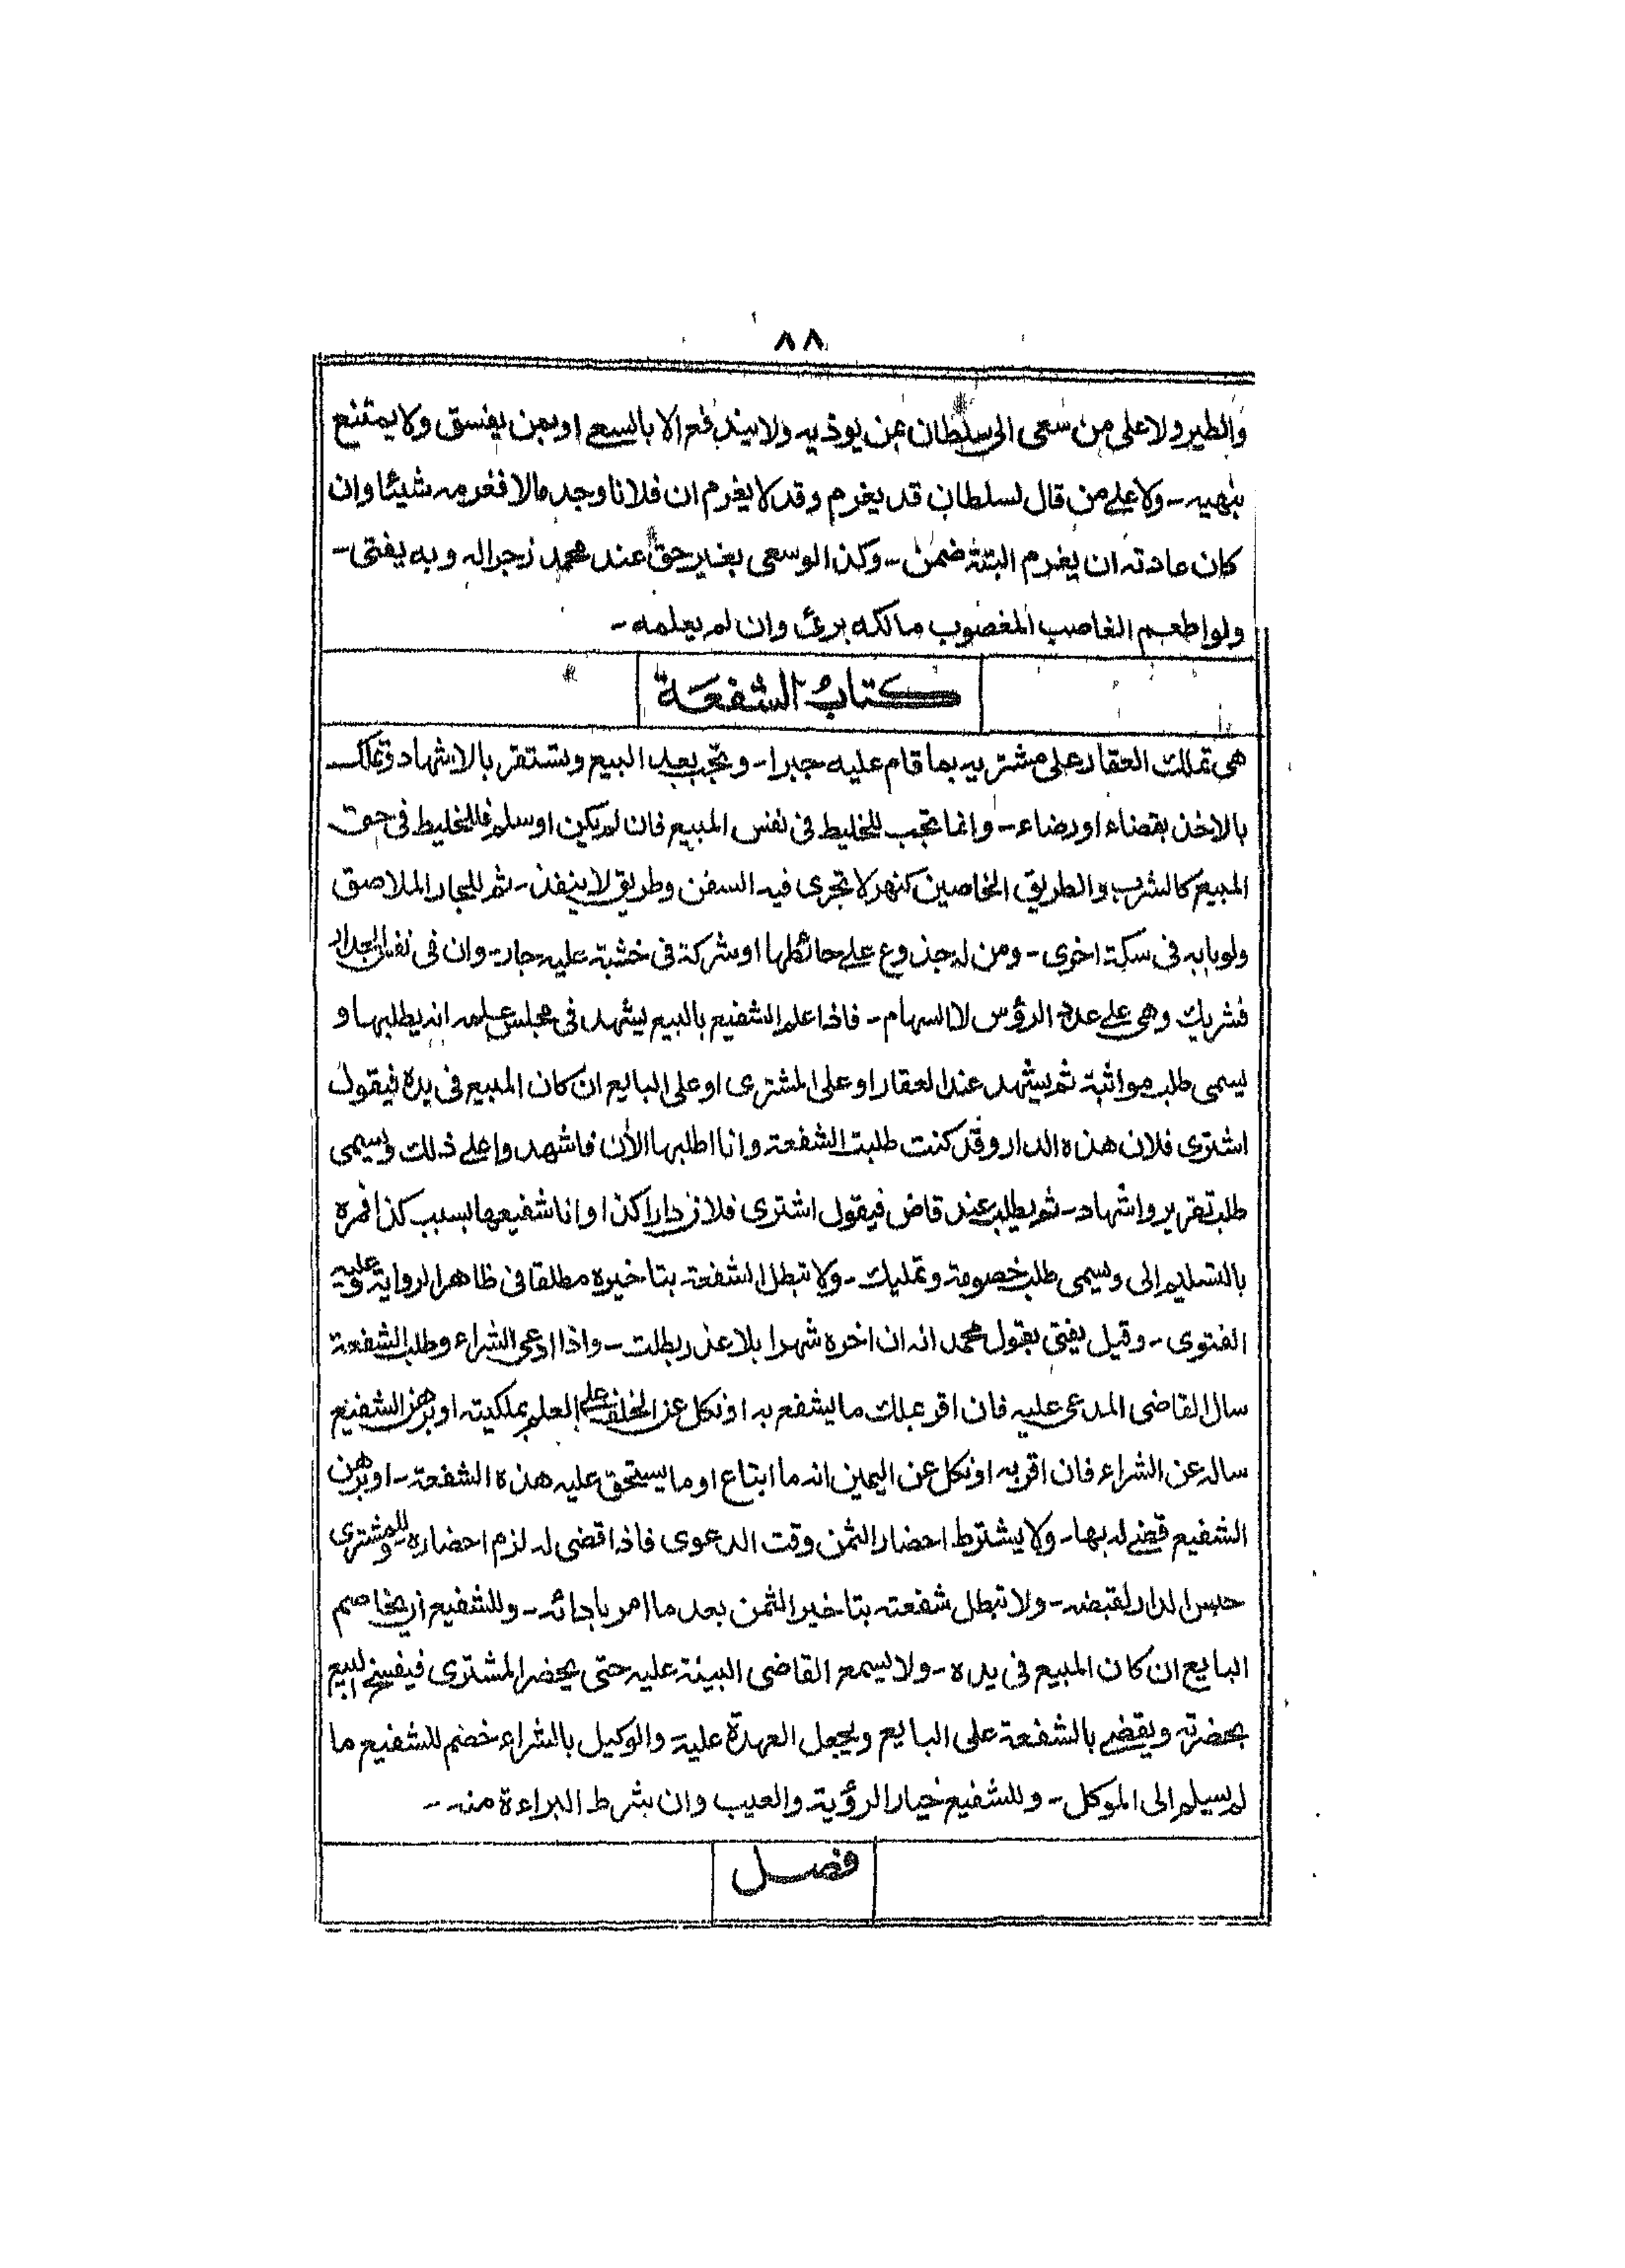 ٨٨
والطير ولا على من سعى الى سلطان بمن يوذيه ولا يندفع الا بالسعى او بمن يفسق ولا يمتنع
بنهيه ـ ولا على من قال لسلطان قد يغرم وقد لا يغرم ان فلانا وجد مالا فغرمه شيئا وان
كان عادته ان يغرم البتة ضمن ـ وكذا لو سعى بغير حق عند محمد زجرا له وبه يفتى ـ
ولو اطعم الغاصب المغصوب مالكه برئ وان لم يعلمه ـ
كتابُ الشفعَة
هى تملك العقار على مشتريه بما قام عليه جبرا ـ وتجب بعد البيع وتستقر بالاشهاد وتملك
بالاخذ بقضاء او رضاء ـ وانما تجب للخليط فى نفس المبيع فان لم يكن او سلم فللخليط فى حق
المبيع كالشرب والطريق الخاصين كنهر لا تجرى فيه السفن وطريق لا ينفذ ـ ثم للجار الملاصق
ولو بابه فى سكة اخرى ـ ومن له جذوع على حائطها او شركة فى خشبة عليه جار ـ وان فى نفس الجدار
فشريك وهى على عدد الرؤس لا السهام ـ فاذا علم الشفيع بالبيع يشهد فى مجلس علمه انه يطلبها و
يسمى طلب مواثبة ثم يشهد عند العقار او على المشترى او على البايع ان كان المبيع فى يده فيقول
اشترى فلان هذه الدار وقد كنت طلبت الشفعة وانا اطلبها الأن فاشهدوا على ذلك ويسمى
طلب تقرير واشهاد ـ ثم يطلب عند قاض فيقول اشترى فلان دارا كذا وانا شفيعها بسبب كذا فمره
بالتسليم الى ويسمى طلب خصومة وتمليك ـ ولا تبطل الشفعة بتاخيره مطلقا فى ظاهر الرواية وعليه
الفتوى ـ وقيل يفتى بقول محمد انه ان اخره شهرا بلا عذر بطلت ـ واذا ادعى الشراء وطلب الشفعة
سال القاضى المدعى عليه فان اقر بملك ما يشفع به او نكل عن الحلف على العلم بملكيته او برهن الشفيع
ساله عن الشراء فان اقر به او نكل عن اليمين انه ما ابتاع او ما يستحق عليه هذه الشفعة ـ او برهن
الشفيع قضى له بها ـ ولا يشترط احضار الثمن وقت الدعوى فاذا قضى له لزم احضاره وللمشترى
حبس الدار لقبضه ـ ولا تبطل شفعته بتاخير الثمن بعد ما امر بادائه ـ وللشفيع ان يخاصم
البايع ان كان المبيع فى يده ـ ولا يسمع القاضى البينة عليه حتى يحضر المشترى فيفسخ البيع
بحضرته ويقضى بالشفعة على البايع ويجعل العهدة عليه والوكيل بالشراء خصم للشفيع ما
لم يسلم الى الموكل ـ وللشفيع خيار الرؤية والعيب وان بشرط البراءة منه ـ
فصل